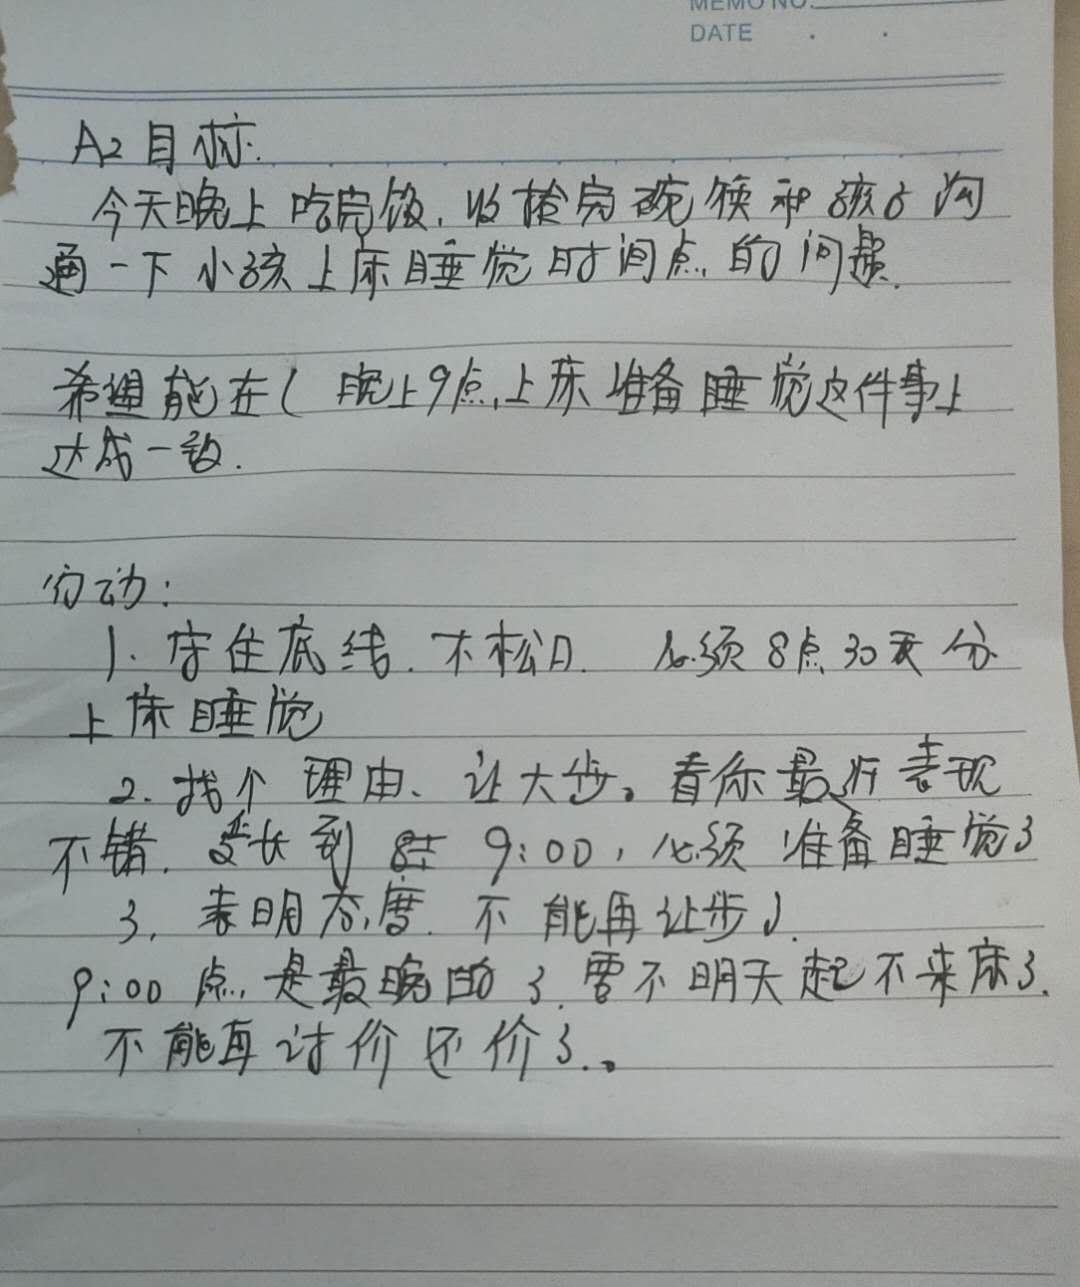 MEMO NO.
DATE . .
A2 目标.
今天晚上吃完饭,收捡完碗筷和孩子沟
通一下小孩上床睡觉时间点的问题.
希望能在(晚上9点,上床准备睡觉这件事上
达成一致.
行动:
1. 守住底线.不松口. 必须8点30 分
上床睡觉
2. 找个理由、让大步。看你最近表现
不错.延长到 9:00,必须准备睡觉了
3. 表明态度.不能再让步了.
9:00点是最晚的了.要不明天起不来床了.
不能再讨价还价了..